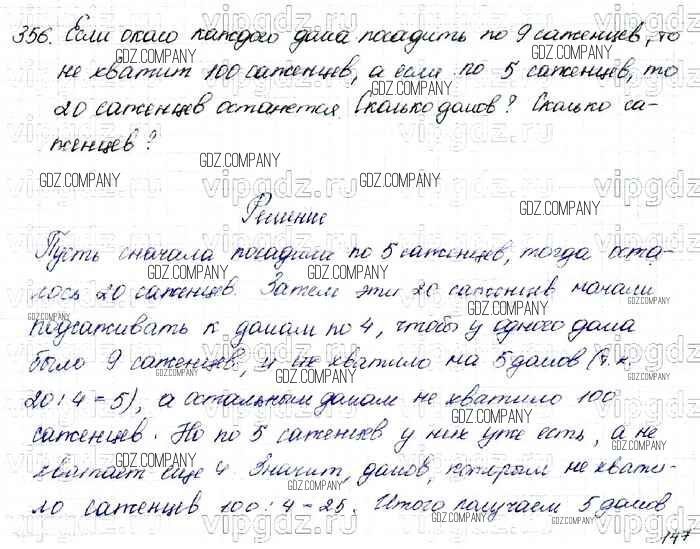 356. Если около каждого дома посадить по 9 саженцев, то
не хватит 100 саженцев, а если по 5 саженцев, то
20 саженцев останется. Сколько домов? Сколько са-
женцев?
Решение
Пусть сначала посадили по 5 саженцев, тогда оста-
лось 20 саженцев. Затем эти 20 саженцев начали
подсаживать к домам по 4, чтобы у одного дома
было 9 саженцев, и их хватило на 5 домов (т.к.
20:4=5), а остальным домам не хватило 100
саженцев. Но по 5 саженцев у них уже есть, а не
хватает еще 4. Значит, домов, которым не хвати-
ло саженцев 100:4=25. Итого получаем 5 домов
147